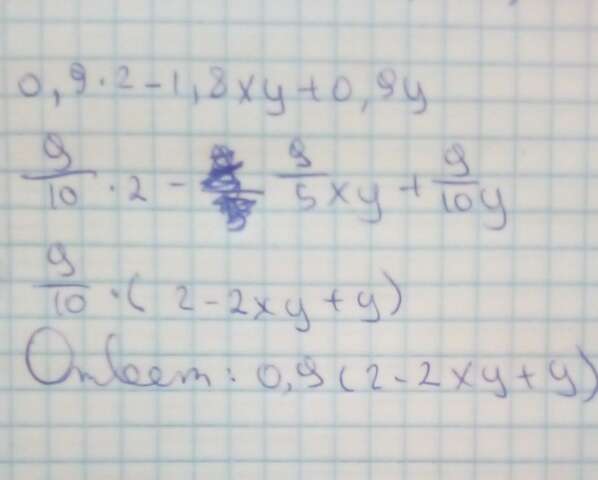 0,9·2-1,8xy+0,9y
9/10·2- 9/5xy+9/10y
9/10·(2-2xy+y)
Ответ: 0,9(2-2xy+y)